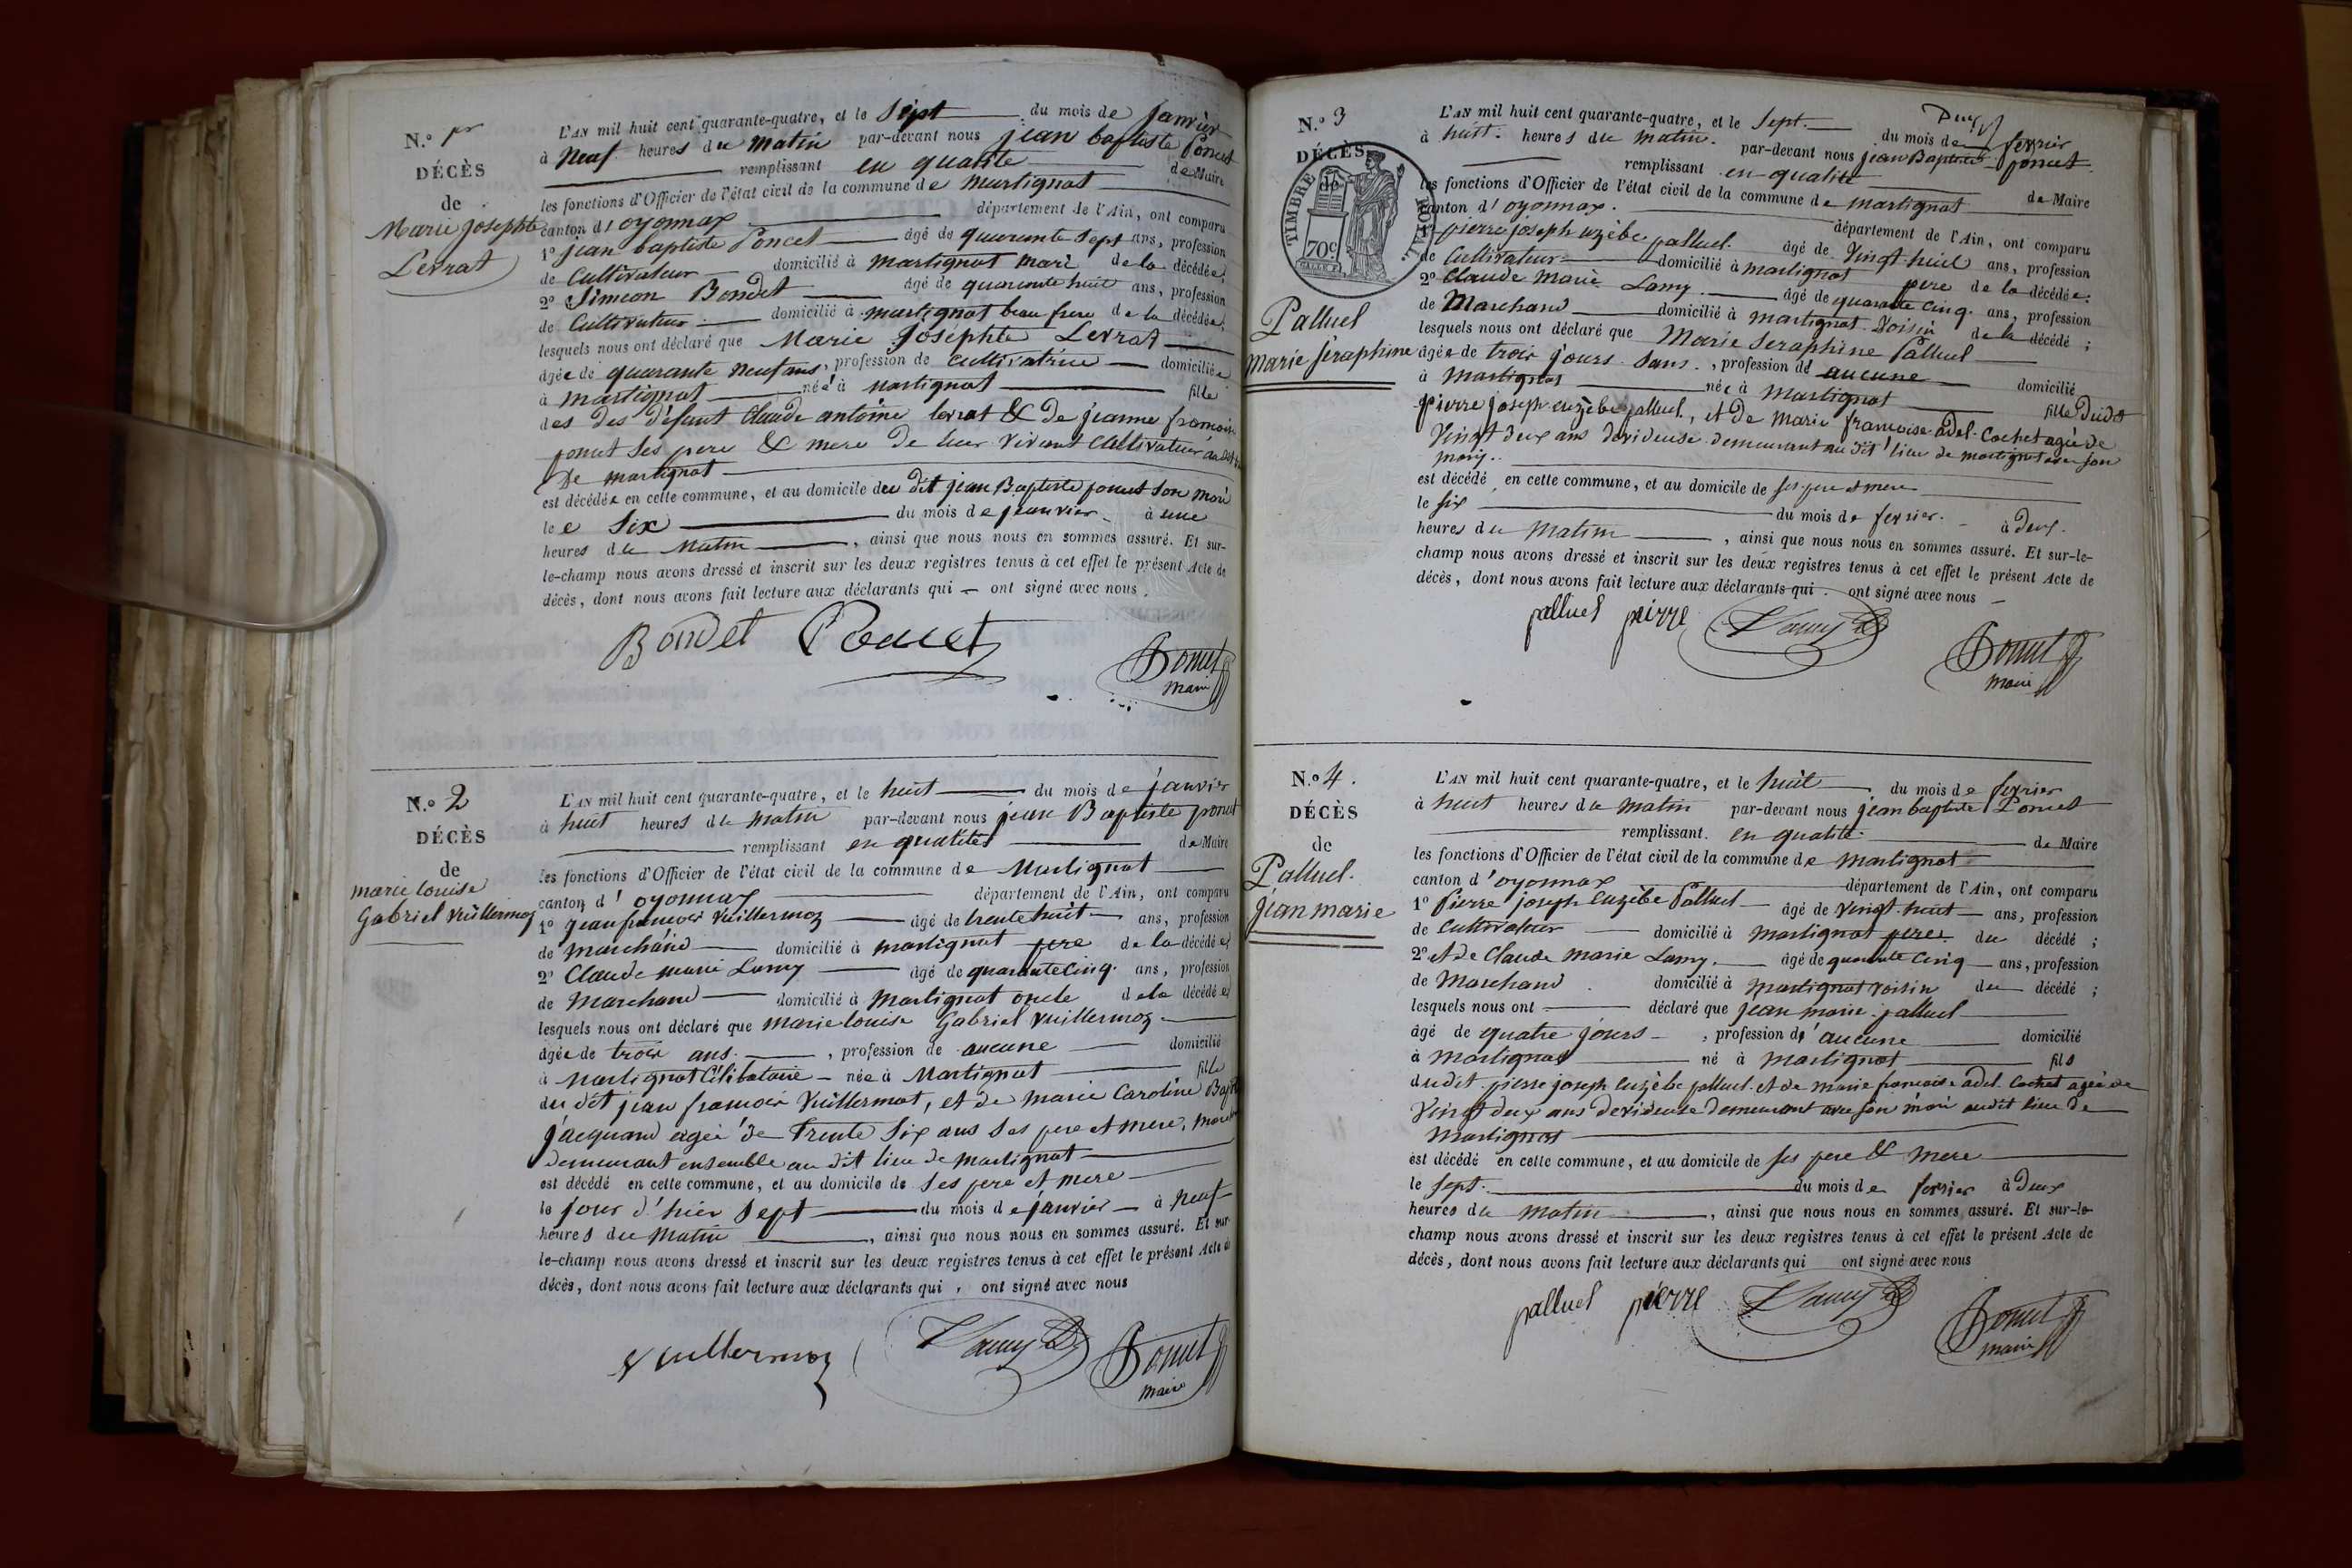 N.º 1er
DÉCÈS
de
Marie josephte
Levrat
L'AN mil huit cent quarante-quatre, et le Sept du mois de Janvier
à Neuf heures du matin par-devant nous jean baptiste Poncet
remplissant en qualité de Maire
les fonctions d'Officier de l'état civil de la commune de Martignat
canton d'oyonnax département de l'Ain, ont comparu
1º jean baptiste Poncet âgé de quarante Sept ans, profession
de Cultivateur domicilié à Martignat mari de la décédée;
2º Simeon Bondet âgé de quarante huit ans, profession
de Cultivateur domicilié à martignat beau frere de la décédée;
lesquels nous ont déclaré que Marie Josephte Levrat
âgée de quarante Neuf ans, profession de Cultivatrice domiciliée
à martignat née à Martignat fille
des des défunt Claude antoine levrat & de jeanne françoise
poncet ses pere & mere de leur vivant Cultivateur
De martignat
est décédée en cette commune, et au domicile du dit jean Baptiste poncet son mari
le Six du mois de jeanvier à une
heures du Matin, ainsi que nous nous en sommes assuré. Et sur-
le-champ nous avons dressé et inscrit sur les deux registres tenus à cet effet le présent Acte de
décès, dont nous avons fait lecture aux déclarants qui ont signé avec nous.
Bondet Poncet
Poncet
Maire
N.º 2
DÉCÈS
de
marie louise
Gabriel Vuillermoz
L'AN mil huit cent quarante-quatre, et le huit du mois de janvier
à huit heures du matin par-devant nous jean Baptiste poncet
remplissant en qualités de Maire
les fonctions d'Officier de l'état civil de la commune de Martignat
canton d'oyonnax département de l'Ain, ont comparu
1º jean francois Vuillermoz âgé de trente huit ans, profession
de marchand domicilié à martignat pere de la décédée;
2º Claude marie Lamy âgé de quarante Cinq ans, profession
de Marchand domicilié à Martignat oncle de la décédée;
lesquels nous ont déclaré que marie louise Gabriel Vuillermoz
âgée de trois ans, profession de aucune domicilié
à Martignat Célibataire née à Martignat fille
du dit jean francois Vuillermot, et de marie Caroline
jacquand agée de Trente Six ans Ses pere et mere,
demeurant ensemble au dit lieu de martignat
est décédé en cette commune, et au domicile de Ses pere et mere
le jour d'hier Sept du mois de janvier à Neuf
heures du Matin, ainsi que nous nous en sommes assuré. Et sur-
le-champ nous avons dressé et inscrit sur les deux registres tenus à cet effet le présent Acte de
décès, dont nous avons fait lecture aux déclarants qui, ont signé avec nous
Vuillermoz Lamy Poncet
Maire
N.º 3
DÉCÈS
TIMBRE ROYAL
70c
Palluel
Marie Seraphine
Deux
L'AN mil huit cent quarante-quatre, et le Sept du mois de fevrier
à huit heures du matin. par-devant nous jean Baptiste poncet
remplissant en qualité de Maire
les fonctions d'Officier de l'état civil de la commune de martignat
canton d'oyonnax. département de l'Ain, ont comparu
pierre joseph euzèbe palluel âgé de Vingt huit ans, profession
de Cultivateur domicilié à martignat pere de la décédée;
2º Claude Marie Lamy âgé de quarante Cinq ans, profession
de Marchand domicilié à martignat Voisin de la décédé;
lesquels nous ont déclaré que Marie Seraphine Palluel
âgée de trois jours Sans, profession de aucune domicilié
à Martignat née à Martignat fille Dudit
pierre joseph euzèbe palluel, et de Marie françoise adel Cochet agée de
Vingt deux ans devideuse demeurant au dit lieu de martignat avec son
mari.
est décédé en cette commune, et au domicile de Ses pere et mere
le Six du mois de fevrier. à deux.
heures du Matin, ainsi que nous nous en sommes assuré. Et sur-le-
champ nous avons dressé et inscrit sur les deux registres tenus à cet effet le présent Acte de
décès, dont nous avons fait lecture aux déclarants qui ont signé avec nous
palluel pierre Lamy
Poncet
Maire
N.º 4.
DÉCÈS
de
Palluel.
jean marie
L'AN mil huit cent quarante-quatre, et le huit du mois de fevrier
à huit heures du matin par-devant nous jean baptiste Poncet
remplissant. en qualité de Maire
les fonctions d'Officier de l'état civil de la commune de Martignat
canton d'oyonnax département de l'Ain, ont comparu
1º Pierre joseph Euzèbe Palluel âgé de Vingt huit ans, profession
de Cultivateur domicilié à Martignat pere du décédé;
2º et de Claude marie Lamy. âgé de quarante Cinq ans, profession
de Marchand domicilié à Martignat voisin du décédé;
lesquels nous ont déclaré que jean marie palluel
âgé de quatre jours, profession d'aucune domicilié
à Martignat né à Martignat fils
dudit pierre joseph Euzèbe palluel et de Marie françoise adel Cochet agée de
Vingt deux ans devideuse Demeurant avec son mari audit lieu de
Martignat
est décédé en cette commune, et au domicile de Ses pere & mere
le Sept. du mois de fevrier à Deux
heures du matin, ainsi que nous nous en sommes assuré. Et sur-le-
champ nous avons dressé et inscrit sur les deux registres tenus à cet effet le présent Acte de
décès, dont nous avons fait lecture aux déclarants qui ont signé avec nous
palluel pierre Lamy Poncet
Maire